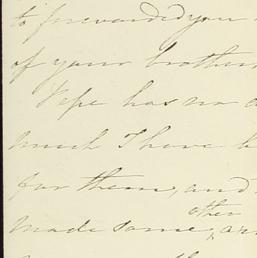 to forwarded you
of your brother
Pepe has no
much I have
for them, and
other
made some, an